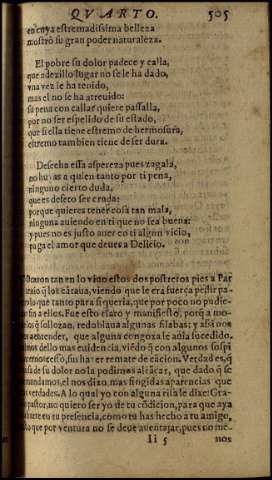 QVARTO. 505
en cuya estremadissima belleza
mostrò su gran poder naturaleza.
El pobre su dolor padece y calla,
que a dezillo lugar no se le ha dado,
vna vez le ha tenido,
mas el no se ha atreuido:
su pena con callar quiere passalla,
por no ser espelido de su estado,
que si ella tiene estremo de hermosura,
estremo tambien tiene de ser dura.
Desecha essa aspereza pues zagala,
no huyas a quien tanto por ti pena,
ninguno cierto duda,
que es desseo ser cruda:
porque quieres tener cosa tan mala,
ninguna auiendo en ti que no sea buena:
y pues no es justo auer en ti algun vicio,
paga el amor que deues a Delicio.
tan en lo viuo estos dos postreros pies a Par
q̃ los cãtaua, viendo que le era fuerça pedir pa
lo que tanto para si queria, que por poco no pudie
fin a ellos. Fue esto claro y manifiesto, porq̃ a mo
q̃ sollozan, redoblaua algunas silabas: y assi nos
entender, que alguna congoxa le auia sucedido.
dello mas euidencia, viẽdo q̃ con algunos sospi
sin hazer remate de cãcion. Verdad es, q̃
de su dolor no la podimos alcãçar, que dado q̃ se
mas, el nos dixo, mas fingidas aparencias que
verdades. A lo qual yo con alguna risa le dixe: Gra
pastor, no quiero ser yo de tu cõdicion, para que aya
en tu presencia, como tu has hecho a tu amigo,
que por ventura no se deue auentajar, pues no me
Ii 5 nos